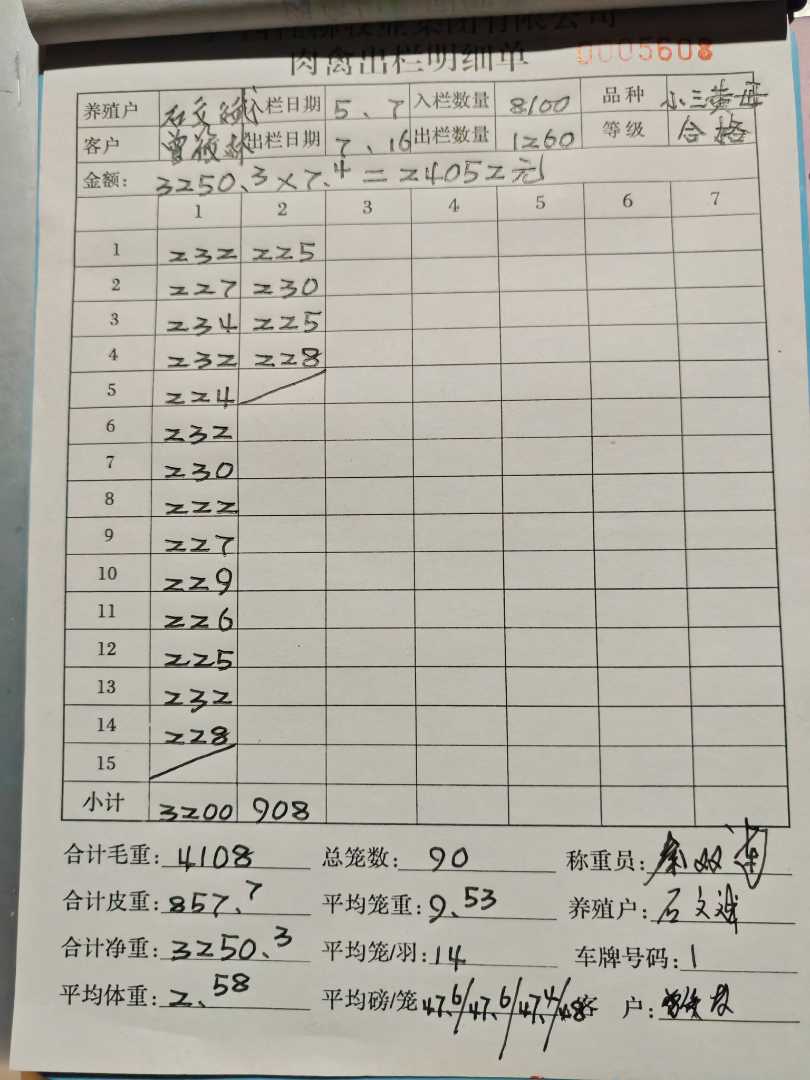 牧业集团有限公司
肉禽出栏明细单 0005608
养殖户 石文斌 入栏日期 5、7 入栏数量 8100 品种 小三黄母
客户 出栏日期 7、16 出栏数量 1260 等级 合格
金额: 3250.3×7.4=24052元
1 2 3 4 5 6 7
1 232 225
2 227 230
3 234 225
4 232 228
5 224
6 232
7 230
8 222
9 227
10 229
11 226
12 225
13 232
14 228
15
小计 3200 908
合计毛重: 4108 总笼数: 90 称重员:
合计皮重: 857.7 平均笼重: 9.53 养殖户: 石文斌
合计净重: 3250.3 平均笼/羽: 14 车牌号码: 1
平均体重: 2.58 平均磅/笼 47.6/47.6/47.4/48 客 户: